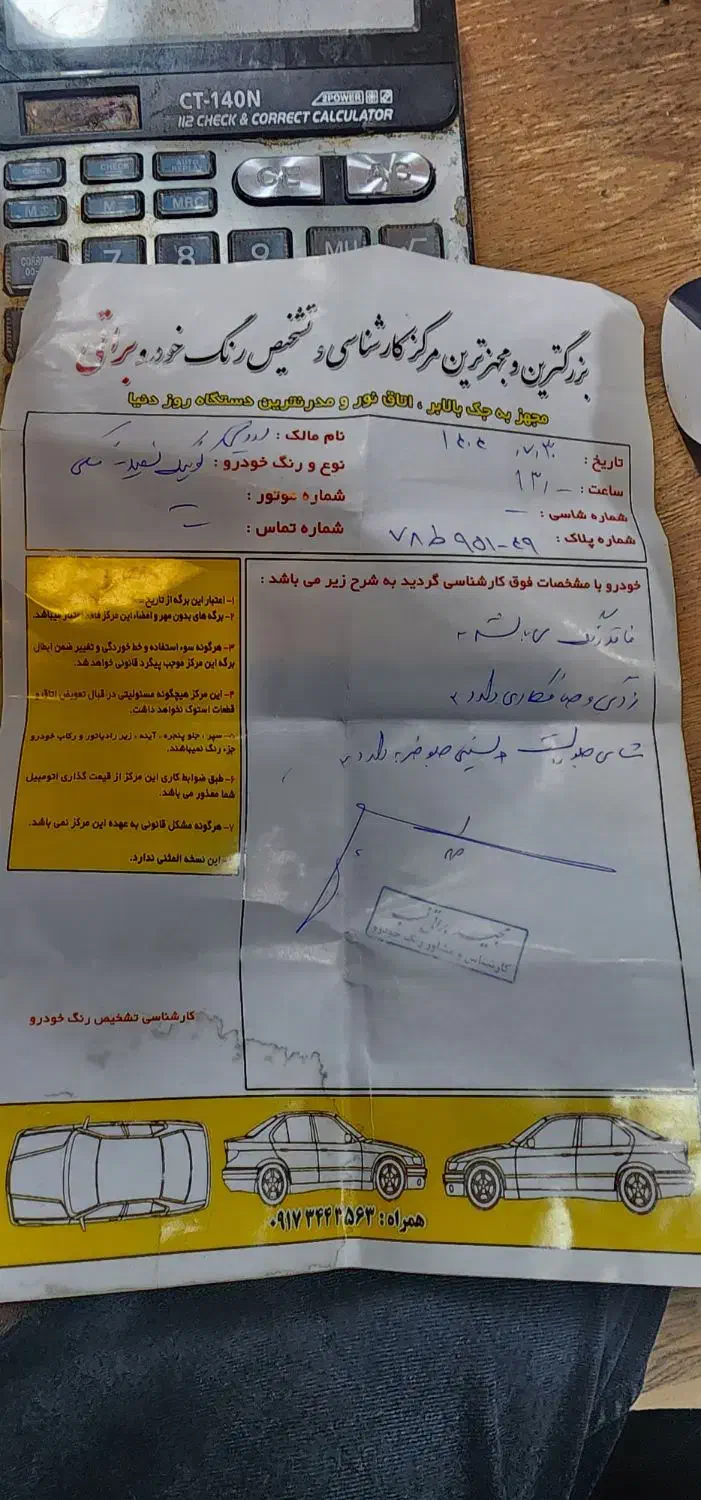 CT-140N
2POWER
112 CHECK & CORRECT CALCULATOR
CHECK
CHECK
AUTO REPLAY
CE
AC
M+
M-
MRC
7
8
9
MU
√
بزرگترین و مجهزترین مرکز کارشناسی و تشخیص رنگ خودرو براتی
مجهز به جک بالابر ، اتاق نور و مدرنترین دستگاه روز دنیا
تاریخ :
ساعت :
شماره شاسی : -
شماره پلاک : ۷۸ ط ۹۵۱-۴۹
نام مالک :
نوع و رنگ خودرو : کوییک سفید
شماره موتور :
شماره تماس :
خودرو با مشخصات فوق کارشناسی گردید به شرح زیر می باشد :
فاقد رنگ می باشد
زدگی و صافکاری دارد
شاسی جلو سینی جلو ضربه دارد
۱- اعتبار این برگه از تاریخ
۲- برگه های بدون مهر و امضاء این مرکز فاقد اعتبار میباشد.
۳- هرگونه سوء استفاده و خط خوردگی و تغییر ضمن ابطال
برگه این مرکز موجب پیگرد قانونی خواهد شد.
۴- این مرکز هیچگونه مسئولیتی در قبال تعویض اتاق و
قطعات استوک نخواهد داشت.
۵- سپر ، جلو پنجره ، آینه ، زیر رادیاتور و رکاب خودرو
جزء رنگ نمیباشند.
۶- طبق ضوابط کاری این مرکز از قیمت گذاری اتومبیل
شما معذور می باشد.
۷- هرگونه مشکل قانونی به عهده این مرکز نمی باشد.
این نسخه المثنی ندارد.
کارشناس و مشاور رنگ خودرو
کارشناسی تشخیص رنگ خودرو
همراه :